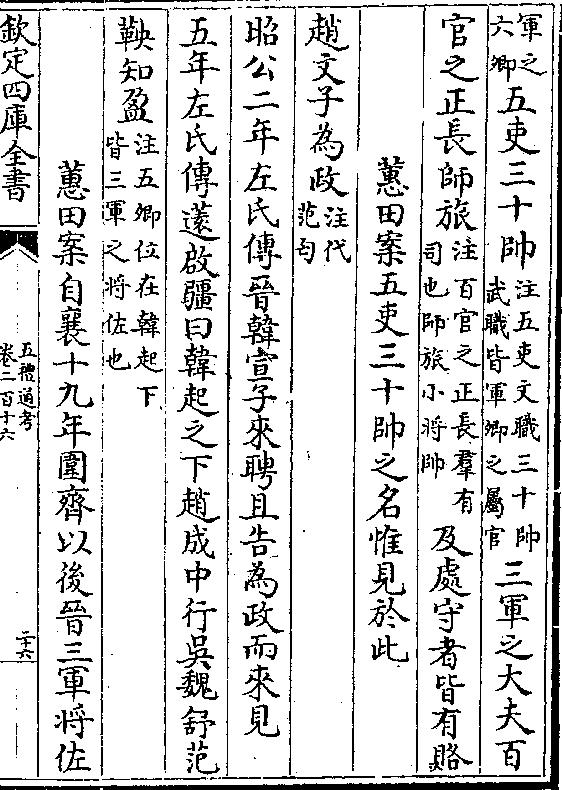 軍之六卿五吏三十帥注五吏文職三十帥武職皆軍卿之屬官三軍之大夫百
官之正長師旅注百官之正長羣有司也師旅小將帥及處守者皆有賂
蕙田案五吏三十帥之名惟見於此
趙文子為政注代范匄
昭公二年左氏傳晉韓宣子來聘且告為政而來見
五年左氏傳薳啟疆曰韓起之下趙成中行吳魏舒范
鞅知盈注五卿位在韓起下皆三軍之將佐也
蕙田案自襄十九年圍齊以後晉三軍將佐
欽定四庫全書
五禮通考
卷二百十六
二十六